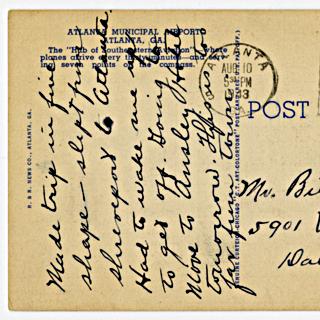 ATLANTA MUNICIPAL AIRPORT
ATLANTA, GA.
The "Hub of Southeastern Aviation" where
planes arrive every thirty minutes—and serv-
ing seven points of the compass.
R. & B. NEWS CO., ATLANTA, GA.
Made trip in fine
shape — slept from
Shreveport to Atlanta.
Had to wake me up
to get off. Going
Move to Ansley Hotel
tomorrow
ATLANTA
AUG 10
PM
POST
Mr.
5901